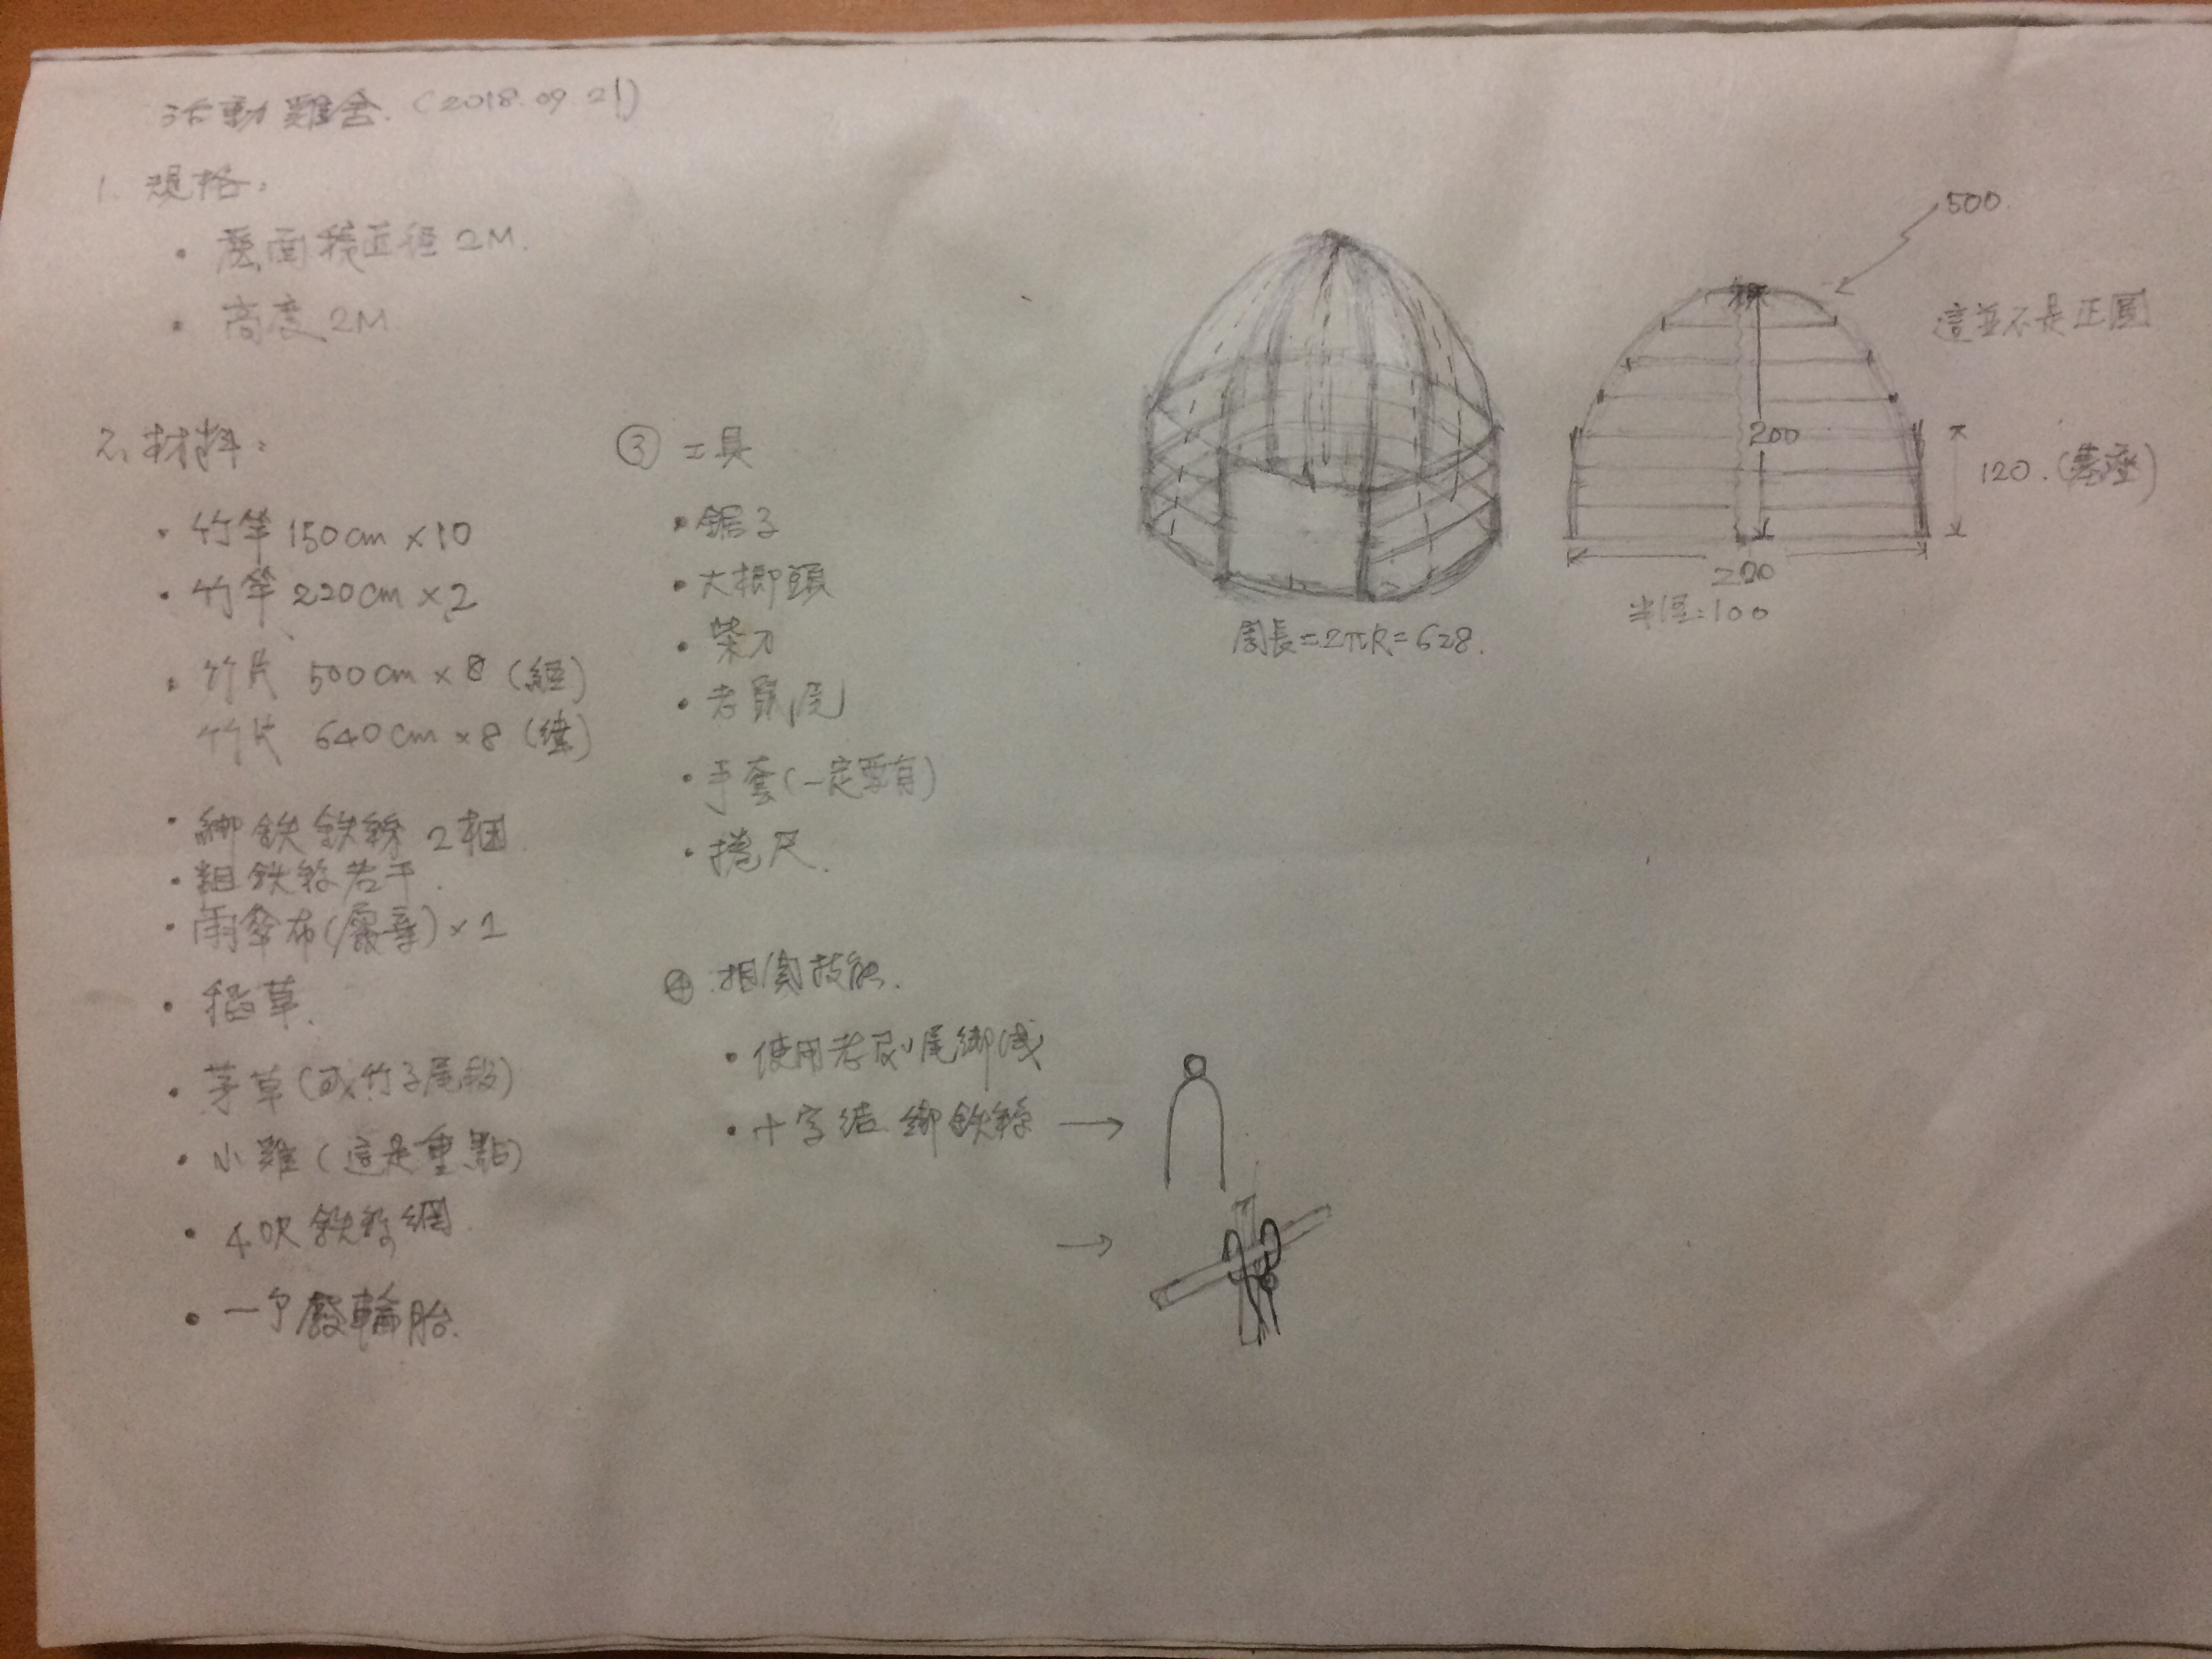 活動雞舍.(2018.09.21)
1. 規格:
• 底面積直徑 2M.
• 高度 2M
2. 材料:
• 竹竿 150cm × 10
• 竹竿 220cm × 2
• 竹片 500cm × 8 (經)
竹片 640cm × 8 (緯)
• 綁鉄鉄絲 2捆
• 粗鉄絲若干.
• 雨傘布(廢棄) × 1
• 稻草.
• 茅草(或竹子尾段)
• 小雞(這是重點)
• 4呎鉄絲網.
• 一个廢輪胎.
③ 工具
• 鋸子
• 大榔頭
• 柴刀
• 老鼠尾
• 手套(一定要有)
• 捲尺.
④ 相関技能.
• 使用老鼠尾綁线
• 十字结 綁鉄絲 →
→
周長=2πR=628.
500.
這並不是正圓
200
120.(基座)
200
半徑:100